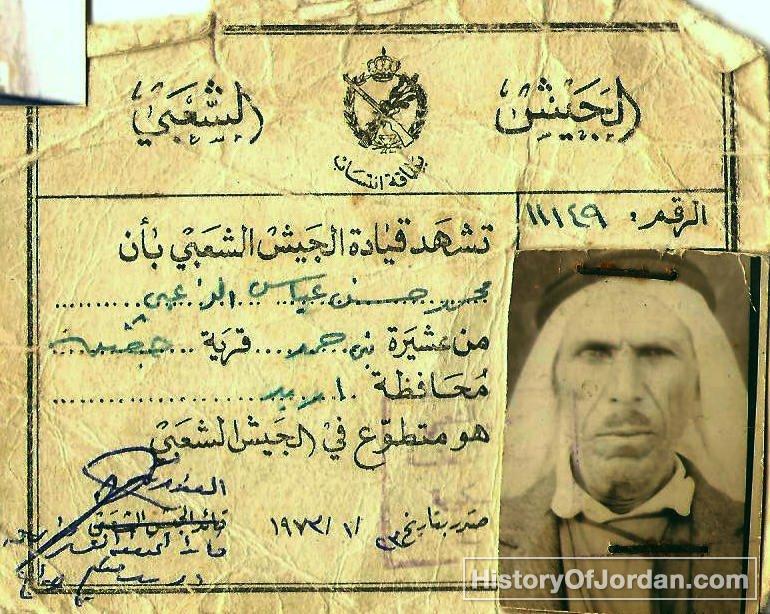 الجيش الشعبي
بطاقة انتساب
الرقم: ١١١٤٩
تشهد قيادة الجيش الشعبي بأن
محمد حسن عباس الزعبي
من عشيرة بني حمد قرية
مُحافظة اربد
هو متطوع في الجيش الشعبي
صدر بتاريخ ٢٣ / ١ / ١٩٧٣
العقيد
قائد الجيش الشعبي
HistoryOfJordan.com